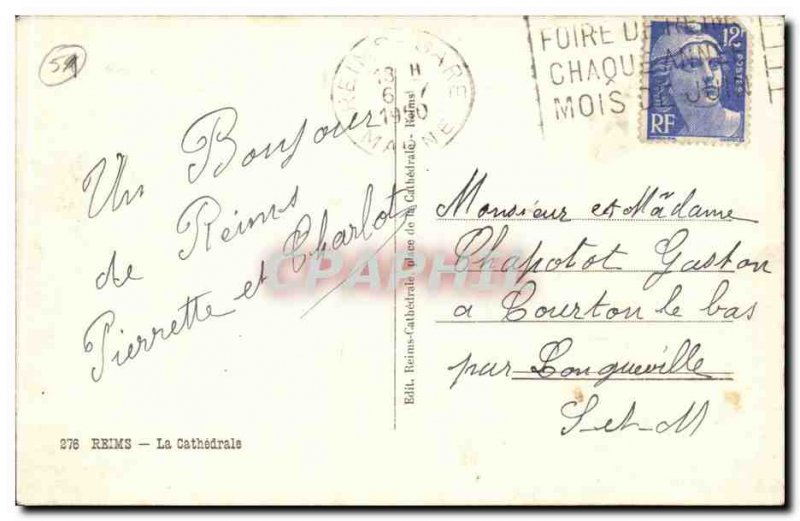 51
REIMS GARE
13 H
6
1950
MARNE
FOIRE DE REIMS
CHAQUE ANNEE
MOIS DE JUIN
12F
POSTES
RF
Un Bonjour
de Reims
Pierrette et Charlot
Edit. Reims-Cathédrale, place de la Cathédrale - Reims
Monsieur et Mâdame
Chapotot Gaston
a Courton le bas
par Longueville
S-et-M
CPAPHIL
276 REIMS — La Cathédrale